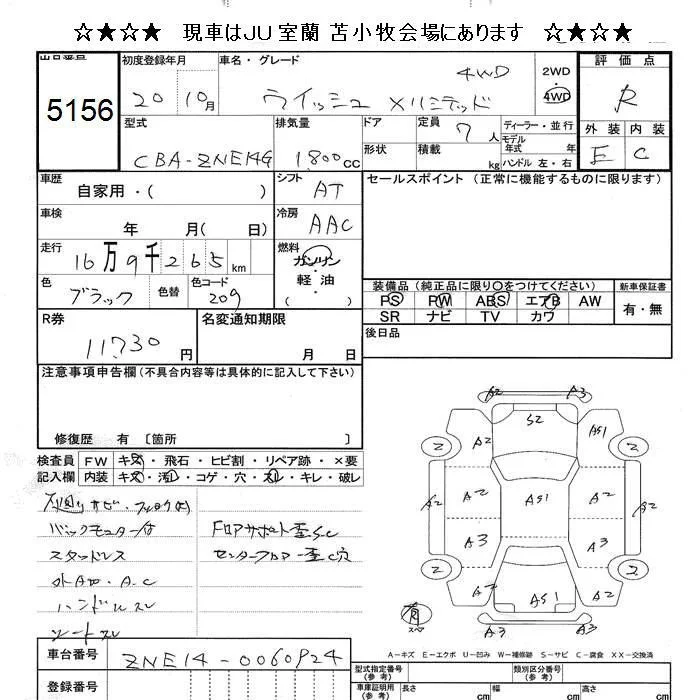 ☆★☆★ 現車はJU室蘭 苫小牧会場にあります ☆★☆★
出品番号 初度登録年月 車名・グレード 評価点
5156 20 10月 ウイッシュ Xリミテッド 4WD 2WD 4WD R
型式 排気量 ドア 定員 7人 ディーラー・並行 外装 内装
CBA-ZNE14G 1800cc 形状 積載 kg モデル年式 年 ハンドル 左・右 E C
車歴 自家用・( ) シフト AT セールスポイント (正常に機能するものに限ります)
車検 年 月( 日) 冷房 AAC
走行 16万9千265km 燃料 ガソリン 軽・油
色 ブラック 色替 色コード 209
装備品 (純正品に限り○をつけてください) 新車保証書
PS PW ABS エアB AW 有・無
SR ナビ TV カワ
R券 11730円 名変通知期限 月 日 後日品
注意事項申告欄(不具合内容等は具体的に記入して下さい)
修復歴 有 〔箇所 〕
検査員記入欄 FW キズ・飛石・ヒビ割・リペア跡・×要
内装 キズ・汚れ・コゲ・穴・スレ・キレ・破レ
下廻りサビ・
バックモニター付 フロアサポート歪S.C
スタッドレス センターフロアー歪C穴
外Aウ・A.C
ハンドルスレ
シートスレ
A2 A3
S2
A2 AS1
2 2
A2 A2 AS1 A2 A2
A3 A3
2 2
A2 AS1 A2
有 スペア
A3 A3
A-キズ E-エクボ U-凹み W-補修跡 S-サビ C-腐食 XX-交換済
車台番号 ZNE14-0060924
登録番号
型式指定番号(参考) 類別区分番号(参考)
車庫証明用(参考) 長さ cm 幅 cm 高さ cm